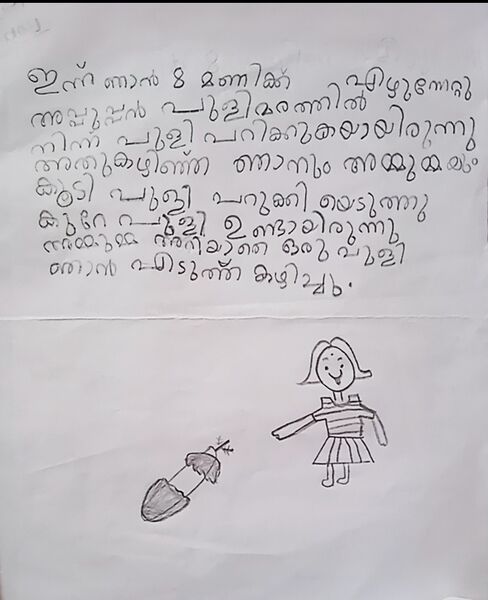 ഇന്ന് ഞാൻ 8 മണിക്ക് എഴുന്നേറ്റു
അപ്പൂപ്പൻ പുളിമരത്തിൽ
നിന്ന് പുളി പറിക്കുകയായിരുന്നു
അതുകഴിഞ്ഞ് ഞാനും അമ്മുമ്മയും
കൂടി പുളി പറുക്കി യെടുത്തു
കുറേ പുളി ഉണ്ടായിരുന്നു
അമ്മുമ്മ അറിയാതെ ഒരു പുളി
ഞാൻ എടുത്ത് കഴിച്ചു.